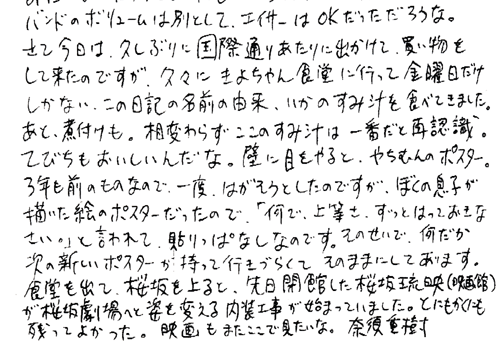 バンドのボリュームは別として、エイサーはOKだっただろうな。
さて今日は、久しぶりに国際通りあたりに出かけて、買い物を
して来たのですが、久々にきよちゃん食堂に行って金曜日だけ
しかない、この日記の名前の由来、いかのすみ汁を食べてきました。
あと、煮付けも。相変わらずここのすみ汁は一番だと再認識。
てびちもおいしいんだな。壁に目をやると、やちむんのポスター。
3年も前のものなので、一度、はがそうとしたのですが、ぼくの息子が
描いた絵のポスターだったので、「何で、上等さ、ずっとはっておきな
さい。」と言われて、貼りっぱなしなのです。そのせいで、何だか
次の新しいポスターが持って行きづらくてそのままにしてあります。
食堂を出て、桜坂を上ると、先日閉館した桜坂琉映(映画館)
が桜坂劇場へと姿を変える内装工事が始まっていました。とにもかくにも
残ってよかった。映画もまたここで見たいな。奈須重樹